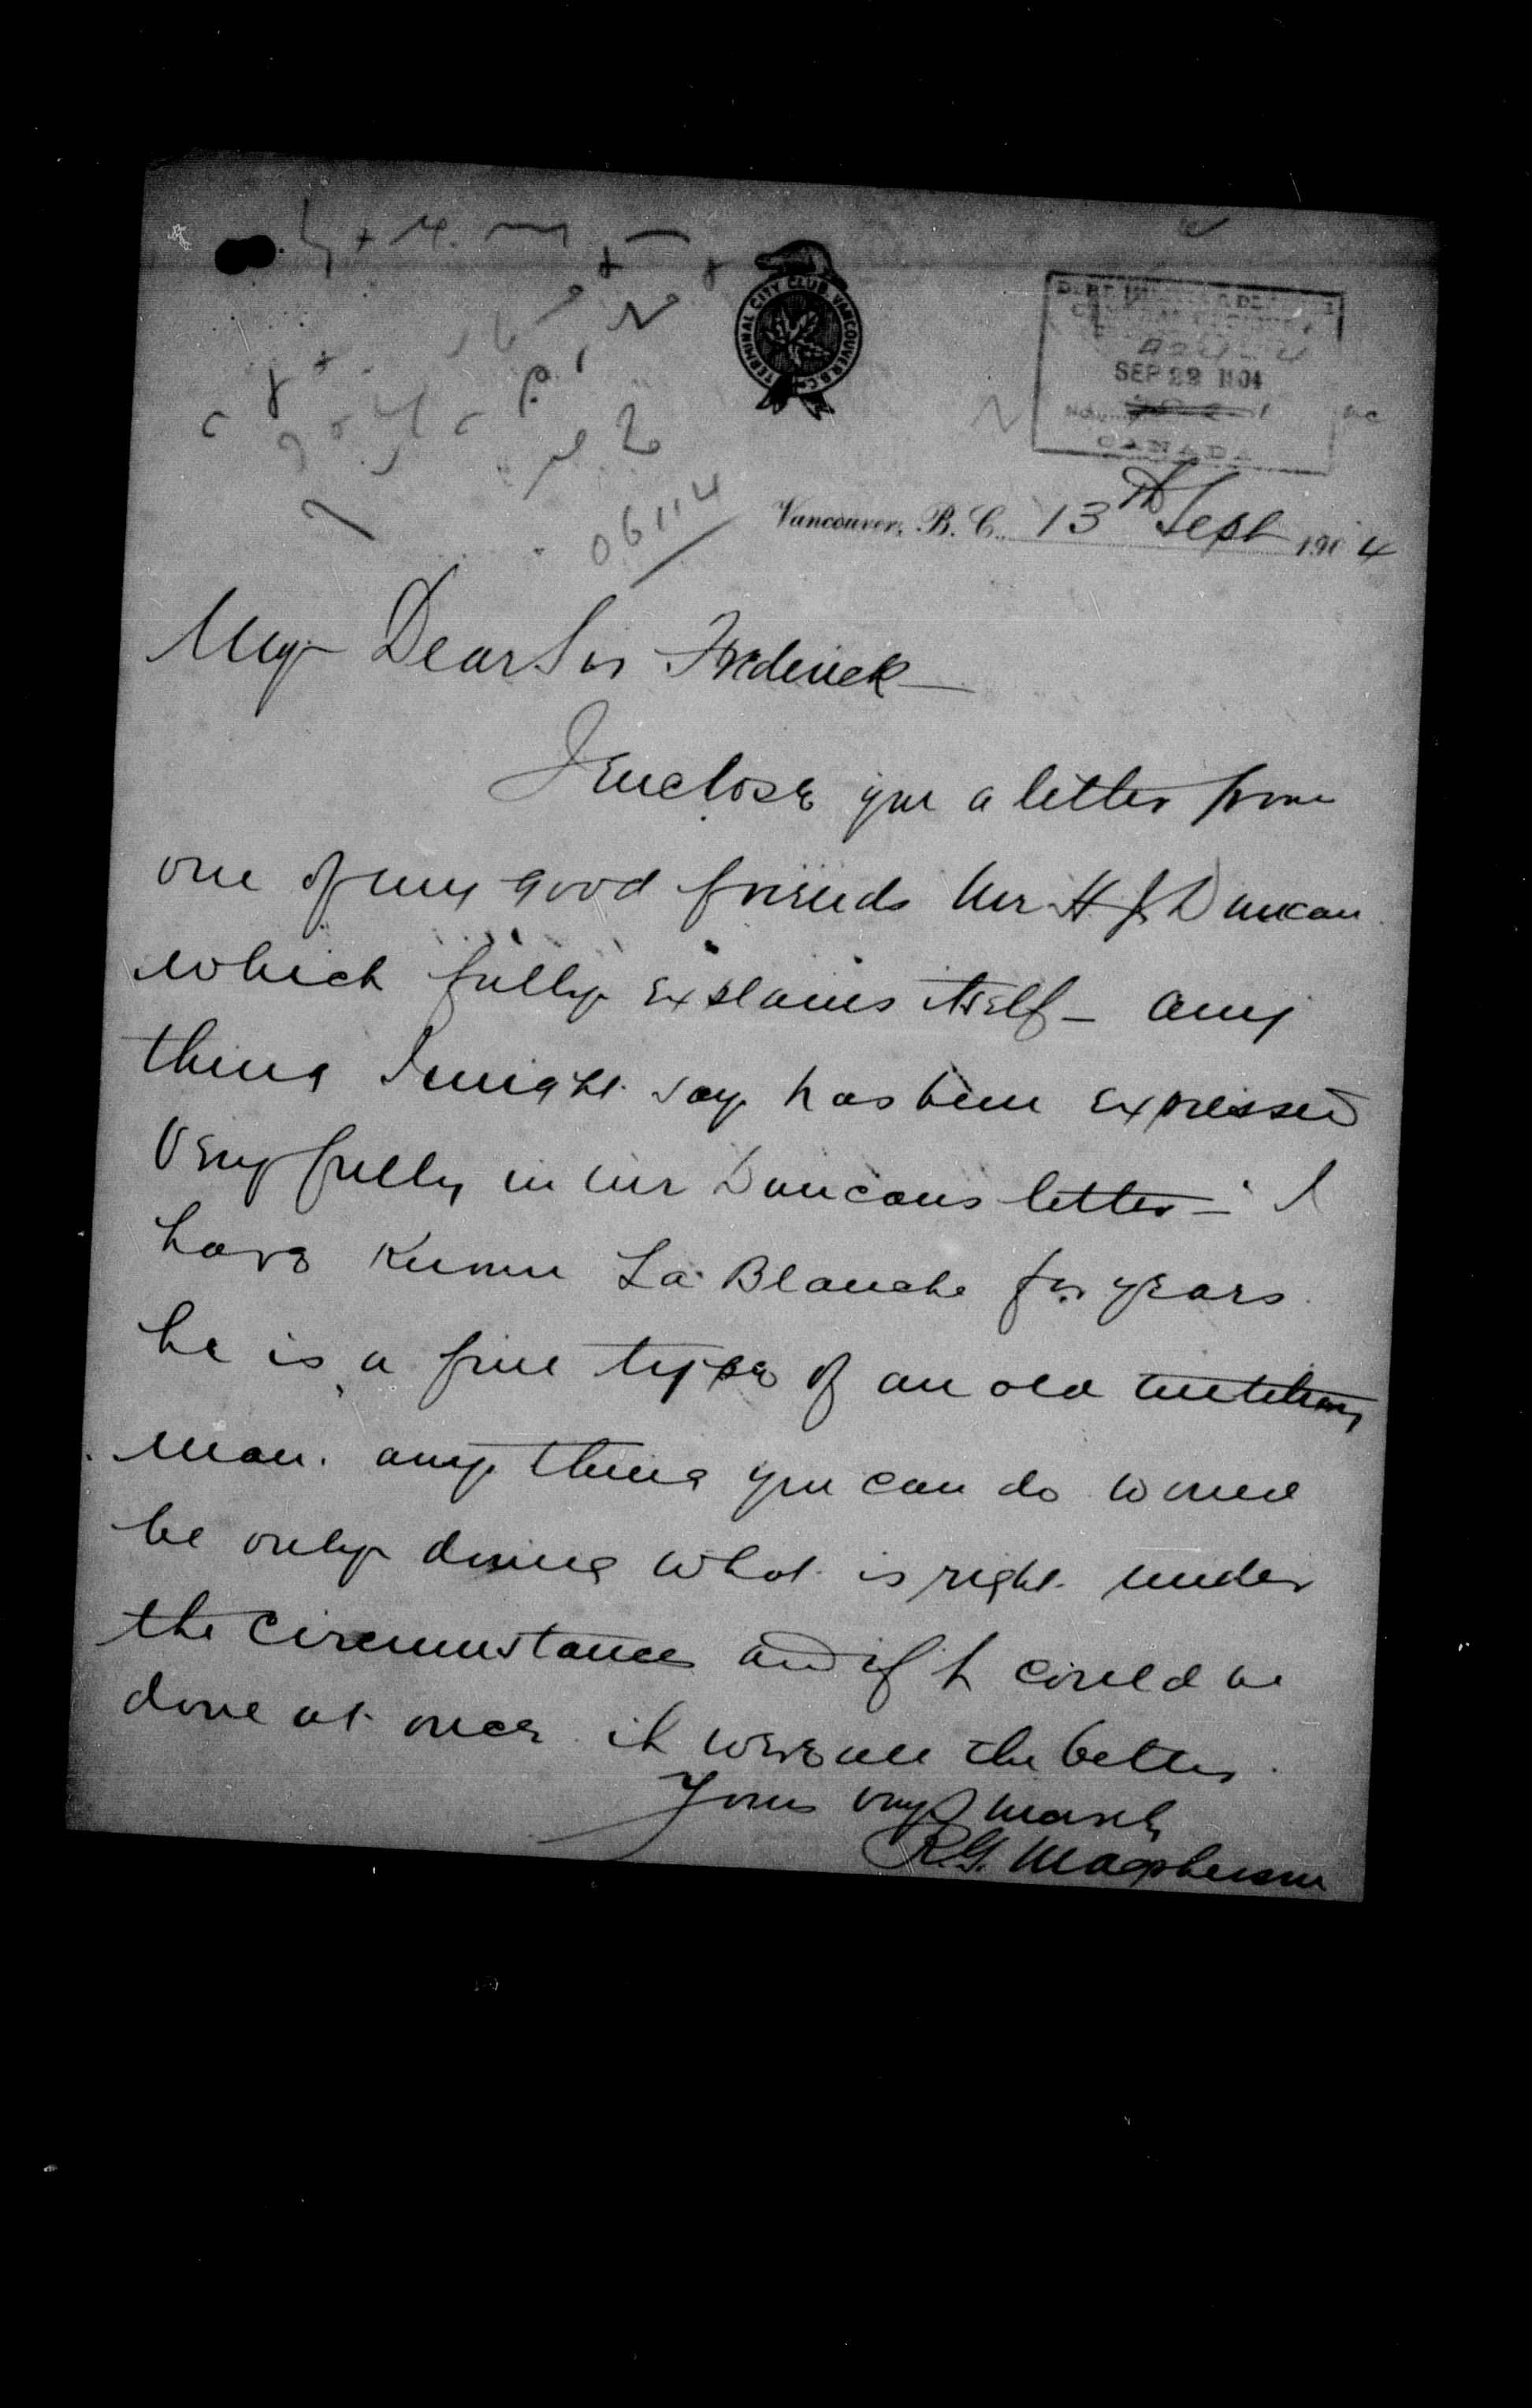 TERMINAL CITY CLUB, VANCOUVER B.C.
SEP 22 1904
CANADA
06114
Vancouver, B. C. 13th Sept 1904
My Dear Sir Frederick
I enclose you a letter from
one of my good friends Mr H J Duncan
which fully explains itself – any
thing I might say has been expressed
very fully in Mr Duncans letter – I
have known La Blanche for years
he is a fine type of an old military
man. any thing you can do would
be only doing what is right under
the circumstances and if it could be
done at once it were all the better.
Yours very much
R.G. Macpherson